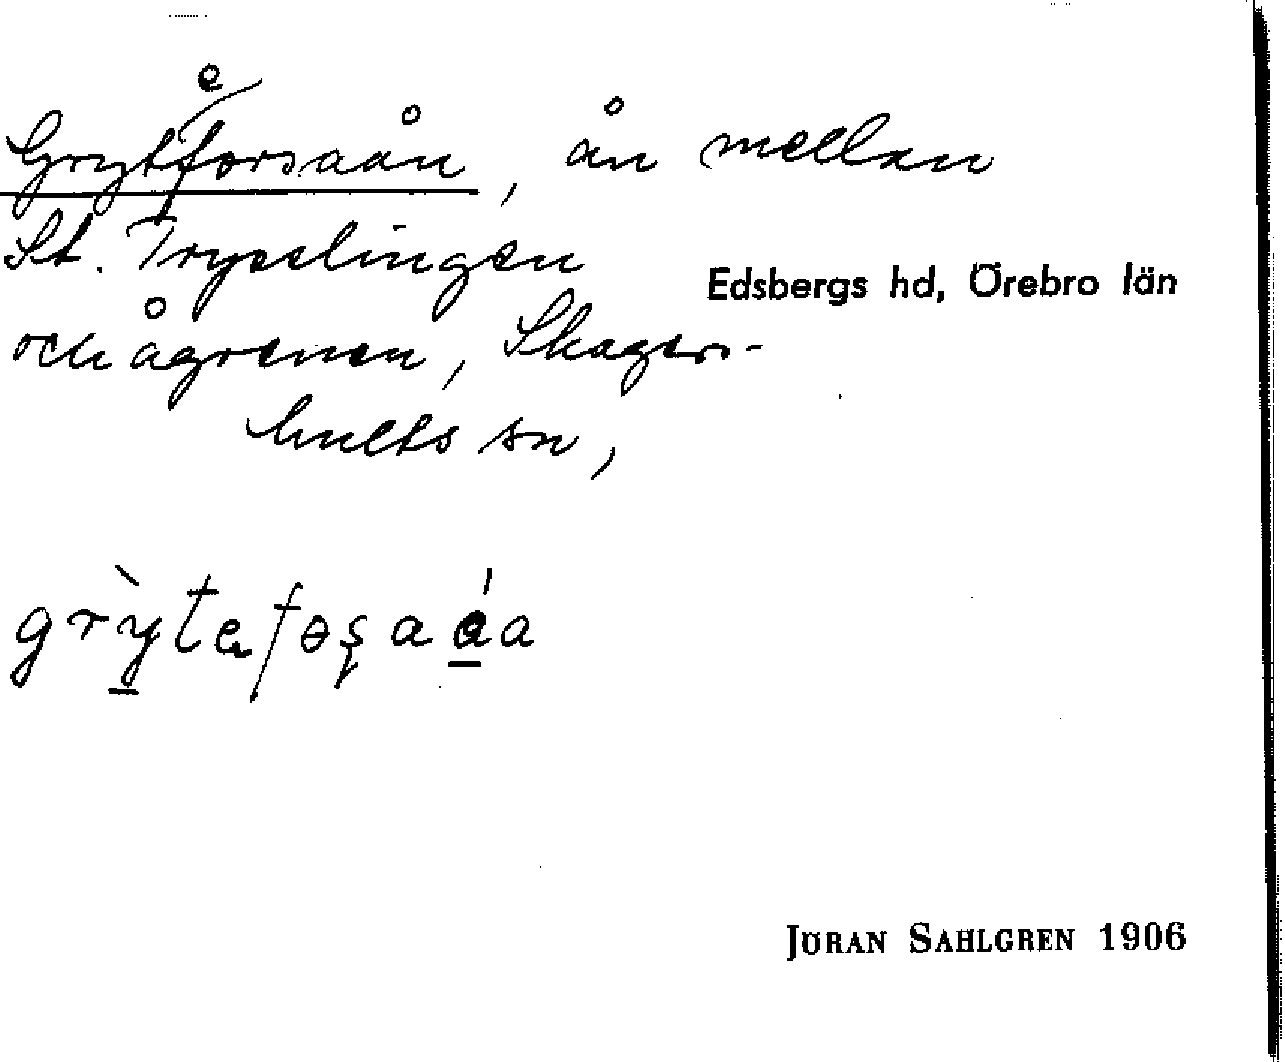 Gryteforsaån, ån mellan
St. Trysslingen
och ågrenen, Skagers-
hults sn,
Edsbergs hd, Örebro län
grỳtefɵşaáa
JÖRAN SAHLGREN 1906